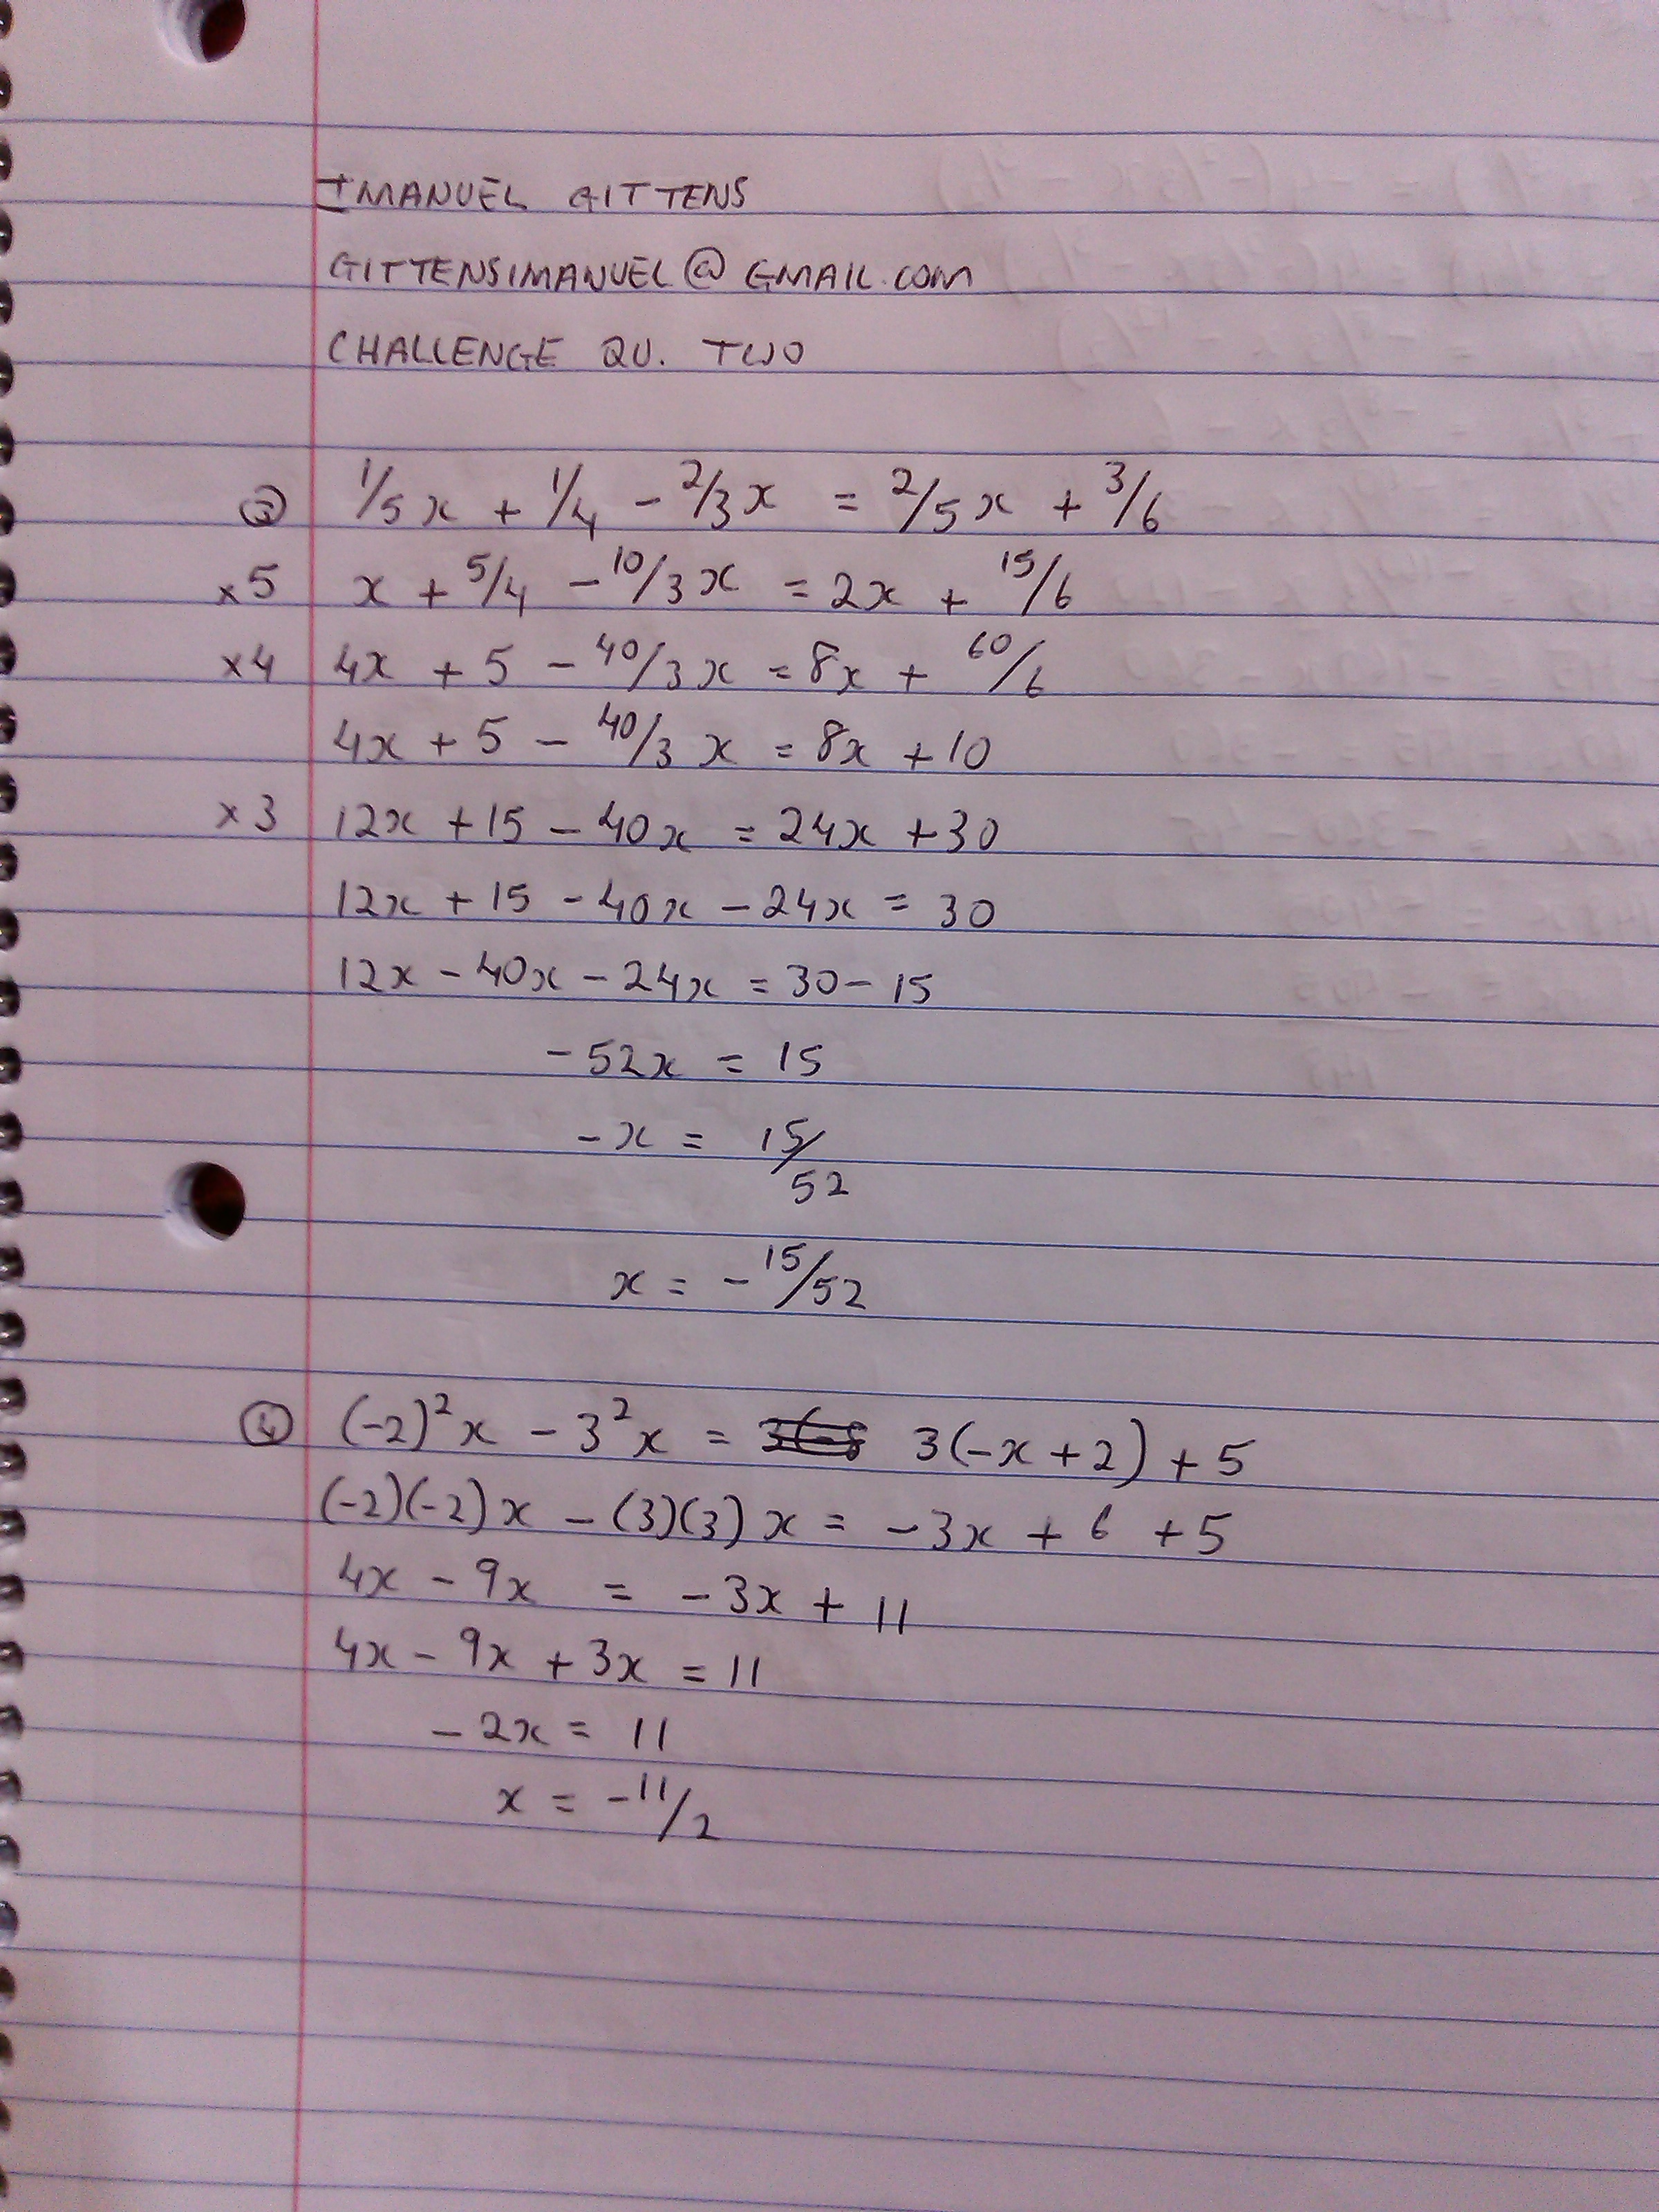 IMANUEL GITTENS
GITTENSIMANUEL@GMAIL.COM
CHALLENGE QU. TWO
ⓐ 1/5x + 1/4 - 2/3x = 2/5x + 3/6
×5 x + 5/4 - 10/3x = 2x + 15/6
×4 4x + 5 - 40/3x = 8x + 60/6
4x + 5 - 40/3x = 8x + 10
×3 12x + 15 - 40x = 24x + 30
12x + 15 - 40x - 24x = 30
12x - 40x - 24x = 30 - 15
-52x = 15
-x = 15/52
x = -15/52
ⓑ (-2)²x - 3²x = 3(-x + 2) + 5
(-2)(-2)x - (3)(3)x = -3x + 6 + 5
4x - 9x = -3x + 11
4x - 9x + 3x = 11
-2x = 11
x = -11/2